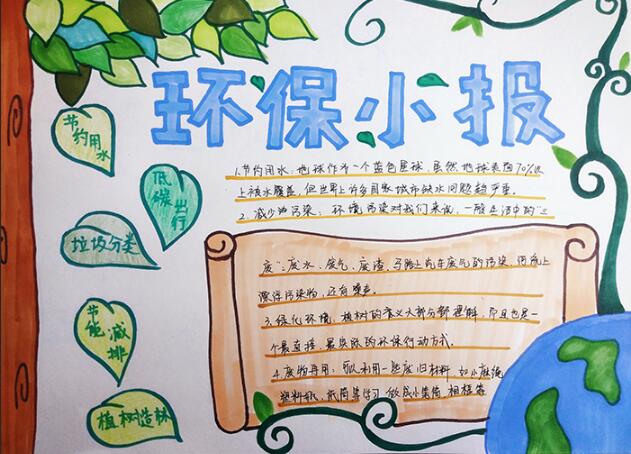 环保小报
节约用水
低碳出行
垃圾分类
节能减排
植树造林
1.节约用水:地球作为一个蓝色星球,虽然地球表面70%以
上被水覆盖,但世界上许多国家城市缺水问题趋严重。
2.减少污染:环境污染对我们来说,一般生活中的“三
废”:废水、废气、废渣,马路上汽车废气的污染,河流上
漂浮污染物,还有噪声。
3.绿化环境:植树的意义大部分都理解,而且也是一
个最直接、最实际的环保行动方式。
4.废物再用:可以利用一些废旧材料,如小麻绳
塑料瓶,纸筒等学习,做成小笔筒,相框等